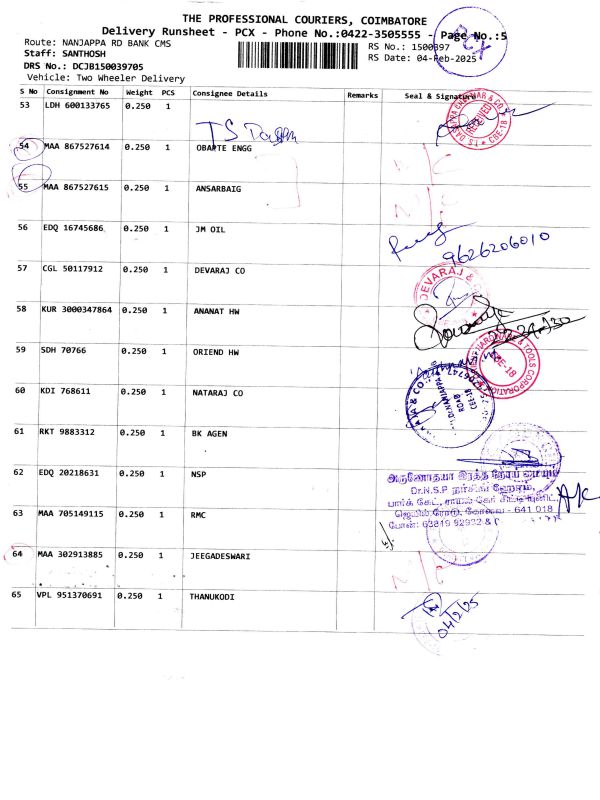 THE PROFESSIONAL COURIERS, COIMBATORE
Delivery Runsheet - PCX - Phone No.:0422-3505555 - Page No.:5
Route: NANJAPPA RD BANK CMS
RS No.: 1500397
Staff: SANTHOSH
RS Date: 04-Feb-2025
DRS No.: DCJB150039705
Vehicle: Two Wheeler Delivery
S No Consignment No Weight PCS Consignee Details Remarks Seal & Signature
53 LDH 600133765 0.250 1
RECEIVED
CBE-18
54 MAA 867527614 0.250 1 OBAPTE ENGG N/C
55 MAA 867527615 0.250 1 ANSARBAIG N/C
56 EDQ 16745686 0.250 1 JM OIL
9626206010
57 CGL 50117912 0.250 1 DEVARAJ CO
DEVARAJ &
58 KUR 3000347864 0.250 1 ANANAT HW
59 SDH 70766 0.250 1 ORIEND HW
& TOOLS CORPORATION
CBE-18
60 KDI 768611 0.250 1 NATARAJ CO
NANJAPPA
ROAD
CBE-18
61 RKT 9883312 0.250 1 BK AGEN
62 EDQ 20218631 0.250 1 NSP
அருணோதயா இரத்த நோய் மையம்
Dr.N.S.P நர்சிங் ஹோம்,
ஜெயில் ரோடு, கோவை - 641 018
போன்: 63819 92932 &
63 MAA 705149115 0.250 1 RMC
64 MAA 302913885 0.250 1 JEEGADESWARI N/C
65 VPL 951370691 0.250 1 THANUKODI
04/2/25